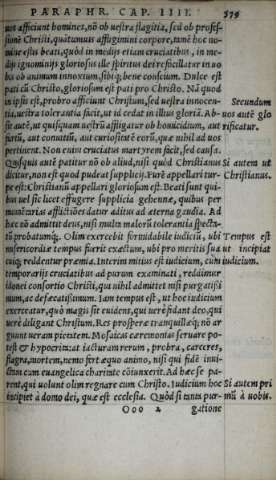 PARAPHR. CAP. IIII. 379
uos afficiunt homines, nō ob uestra flagitia, sed ob profes-
sionē Christi, quatenus affligimini corpore, tamē hoc no-
mine estis beati, quòd in medijs etiam cruciatibus, in me-
dijs ignominijs gloriosus ille spiritus dei refocillatur in uo
bis ob animum innoxium, sibíq; bene conscium. Dulce est
pati cū Christo, gloriosum est pati pro Christo. Nā quod
in ipsis est, probro afficiunt Christum, sed uestra innocen- Secundum
tia, uestra tolerantia facit, ut id cedat in illius gloriā. Ab- uos autē glo
sit autē, ut quisquam uestrū affligatur ob homicidium, aut rificatur.
furtū, aut conuitiū, aut curiositatē eorū, quæ nihil ad uos
pertinent. Non enim cruciatus martyrem facit, sed causa.
Quisquis autē patitur nō ob aliud, nisi quòd Christianus Si autem ut
dicitur, non est quod pudeat supplicij. Furē appellari tur- Christianus.
pe est: Christianū appellari gloriosum est. Beati sunt qui-
bus uel sic licet effugere supplicia gehennæ, quibus per
momētarias afflictiōes datur aditus ad æterna gaudia. Ad
hæc nō admittit deus, nisi multa malorū tolerantia specta-
tū probatumq́;. Olim exercebit formidabile iudiciū, ubi Tempus est
misericordiæ tempus fuerit exactum, ubi pro meritis sua ut incipiat
cuiq; reddentur præmia. Interim mitius est iudicium, cum iudicium.
temporarijs cruciatibus ad purum examinati, reddimur
idonei consortio Christi, qui nihil admittet nisi purgatissi
mum, ac defæcatissimum. Iam tempus est, ut hoc iudicium
exerceatur, quò magis sit euidens, qui uerè fidant deo, qui
uerè diligant Christum. Res prosperæ tranquillæq́; nō ar
guunt ueram pietatem. Mosaicas cæremonias seruare po-
test & hypocrita: at iacturam rerum, probra, carceres,
flagra, mortem, nemo fert æquo animo, nisi qui fidē inui-
ctam cum euangelica charitate cōiunxerit. Ad hæc se pa-
rent, qui uolunt olim regnare cum Christo. Iudicium hoc Si autem pri
incipiet à domo dei, quæ est ecclesia. Quòd si tanta pur- mū à nobis.
Ooo 2 gatione